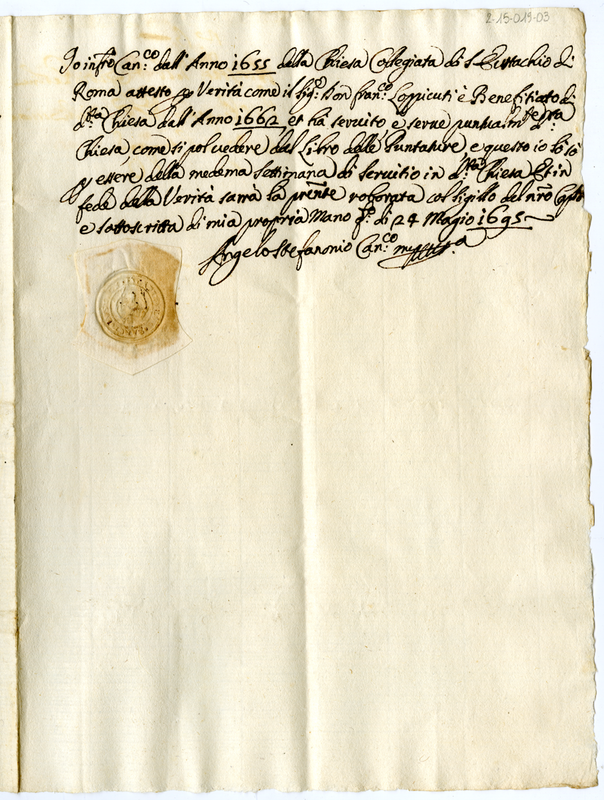 2-15-019-03
Io infro Can.co dall'Anno 1655 della Chiesa Collegiata di S. Eustachio di
Roma attesto p Verità come il Sig.r Don Fran.co Coppicuti è Benefitiato di
d.ta Chiesa dall'Anno 1662 et hà servito e serve puntualm.te la d.ta
Chiesa come si pol vedere dal Libro delle Puntature e questo io lo sò
p essere della medema settimana di servitio in d.ta Chiesa Et in
fede della Verità sarrà la pn̄te roborata col sigillo del nr̄o Cap.lo
e sottoscritta di mia propria Mano q.o di 24 Magio 1695
Angelo Stefanonio Can.co